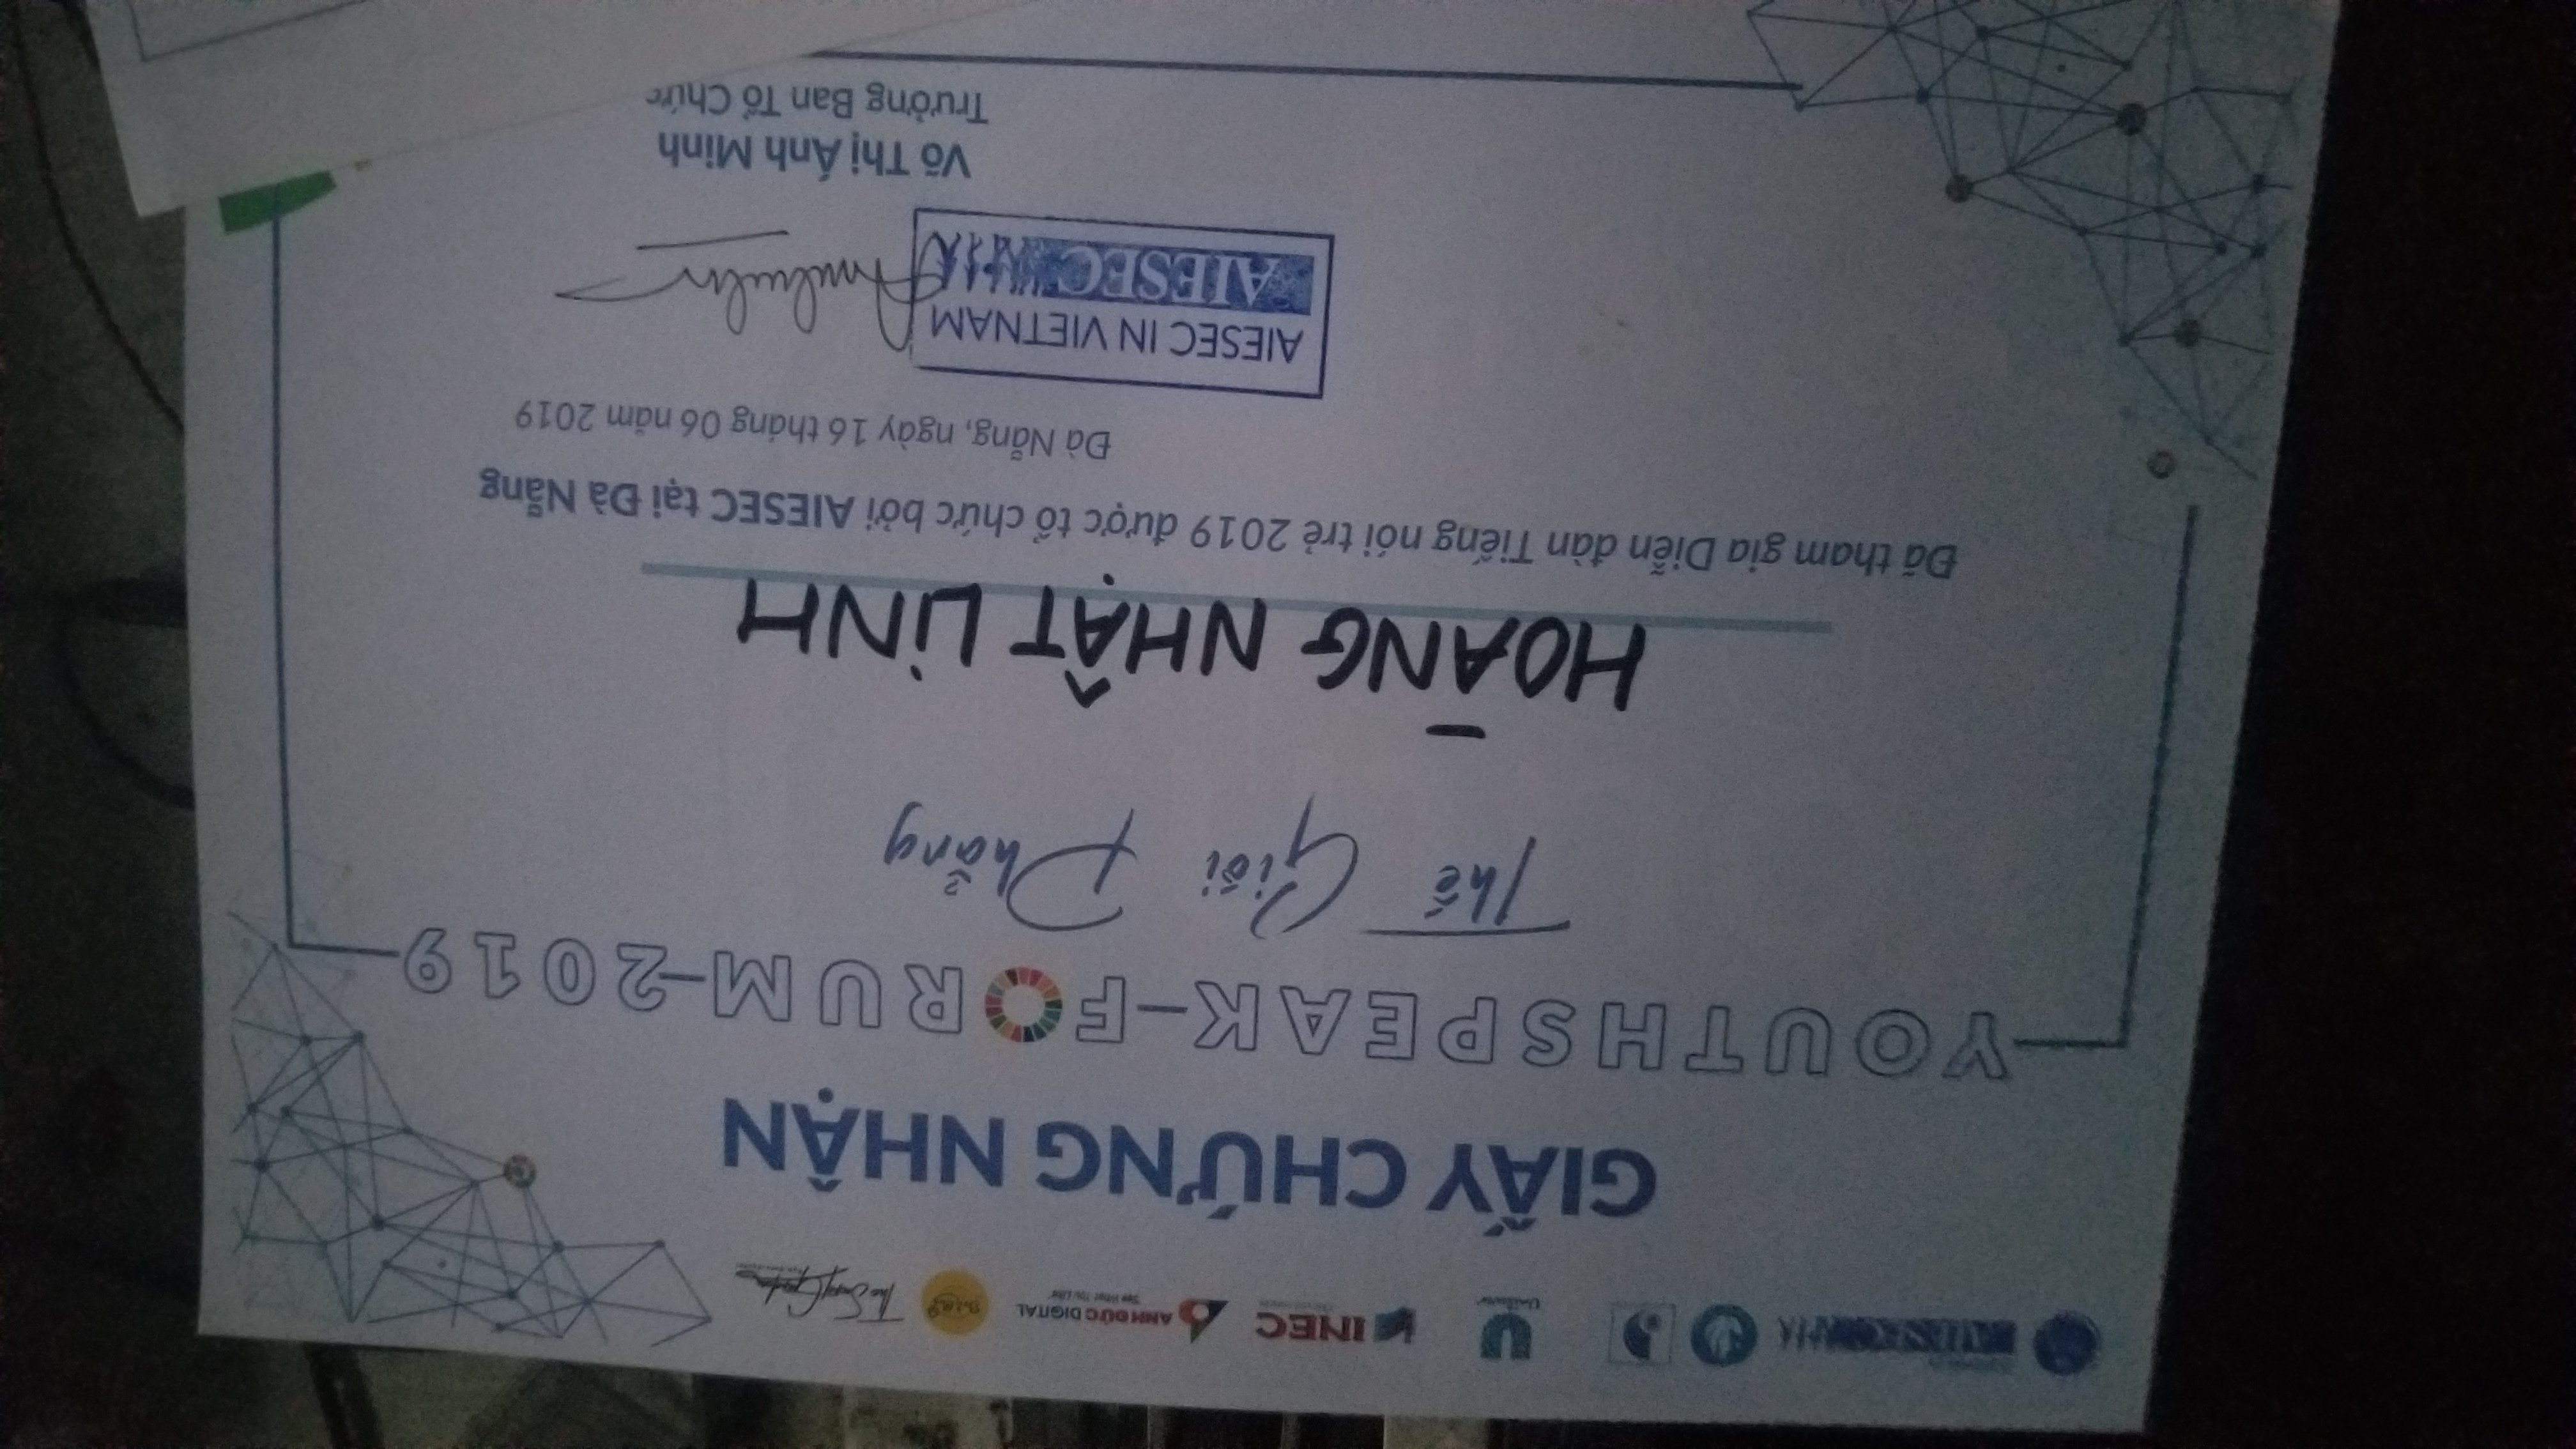 INEC
ANH ĐỨC DIGITAL
GIẤY CHỨNG NHẬN
YOUTHSPEAK-FORUM-2019
Thế Giới Phẳng
HOÀNG NHẬT LINH
Đã tham gia Diễn đàn Tiếng nói trẻ 2019 được tổ chức bởi AIESEC tại Đà Nẵng
Đà Nẵng, ngày 16 tháng 06 năm 2019
AIESEC IN VIETNAM
AIESEC
Võ Thị Ánh Minh
Trưởng Ban Tổ Chức